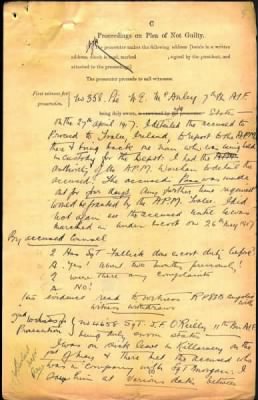 C
Proceedings on Plea of Not Guilty.
The prosecutor makes the following address [hands in a written
address, which is read, marked , signed by the president, and
attached to the proceedings]
The prosecutor proceeds to call witnesses.
First witness for
prosecution.
No 358. Pte N. E. McAuley 7th Bn A.I.F.
being duly sworn, States
On the 29th April 1917. I detailed the accused to
proceed to Tralee, Ireland, to report to the A.P.M.
there & bring back one man which was being held
in custody for the Depot. I had the
authority of the A.P.M. Wareham to detail the
accused. The accused's Pass was made
out for four days. Any further time required
would be granted by the A.P.M. Tralee. I did
not again see the accused until he was
marched in under escort on 26th May 1917
By accused Counsel
Q Has Sgt Tallick done escort duty before?
A. Yes! about two months previously!
Q Were there any complaints
A No!
His evidence read to witness R of P 83 complied with
Witness withdraws
2nd witness for
Prosecution
No 4658 Sgt. J. F. O'Reilly 11th Bn A.I.F.
being duly sworn states
I was on sick leave in Killarney on the
1st of May & there met the accused who
was in company with Sgt Morgan. I
saw him at various dates between